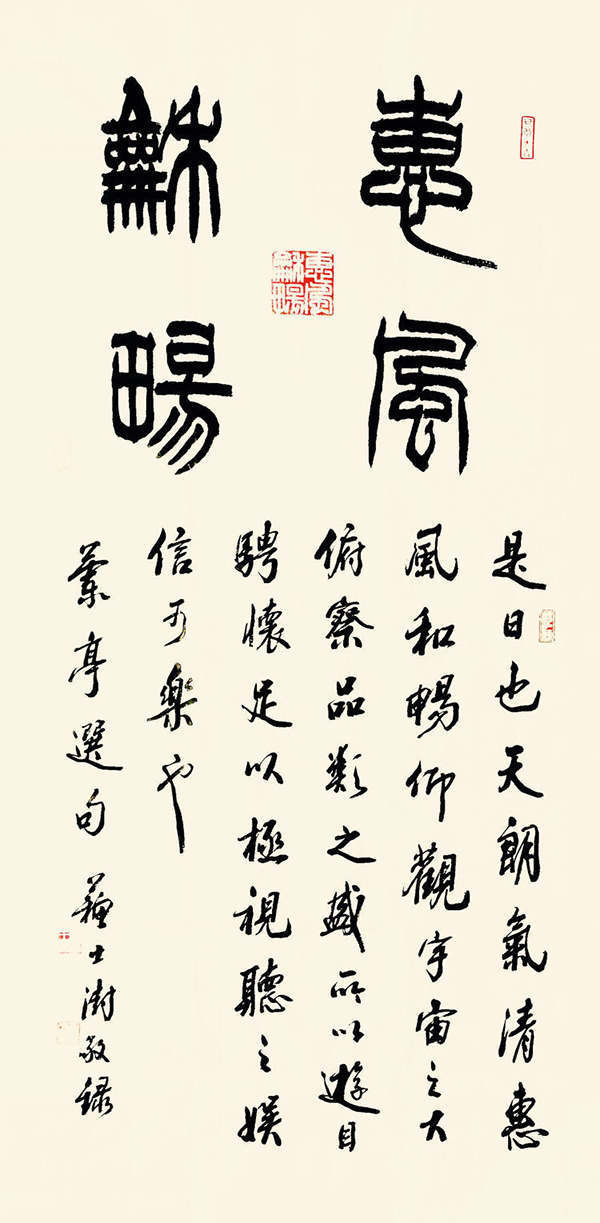 惠風
龢暢
惠風
龢暢
是日也天朗氣清惠
風和暢仰觀宇宙之大
俯察品類之盛所以遊目
騁懷足以極視聽之娛
信可樂也
蘭亭選句 蘇士澍敬錄